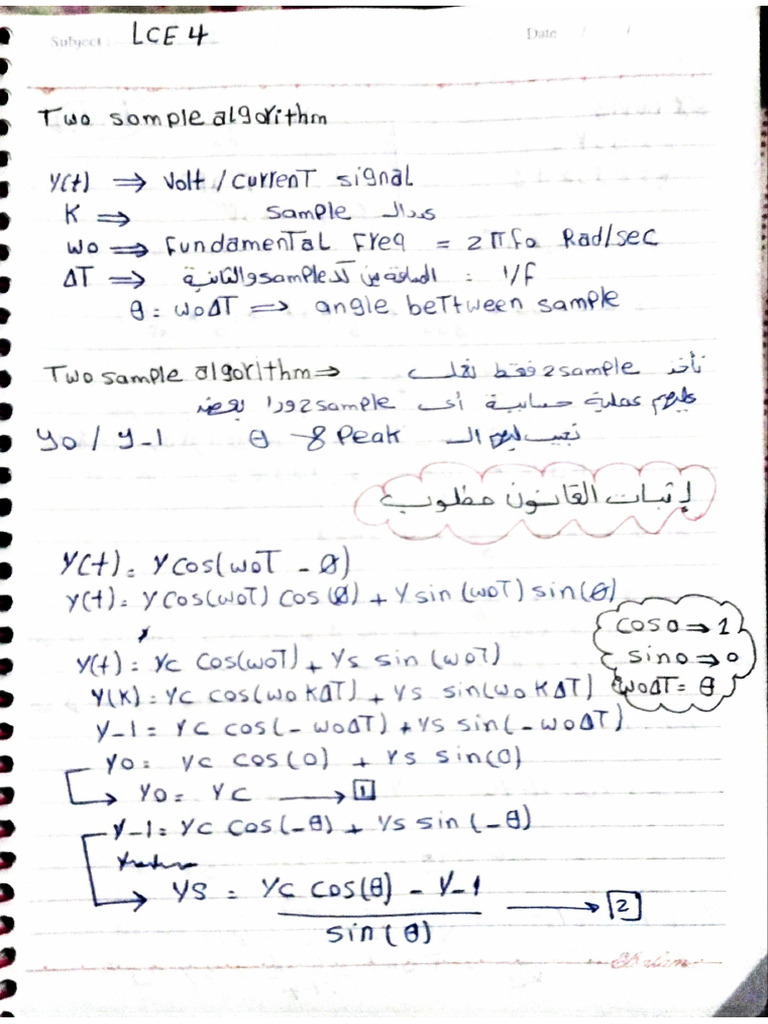 Subject: LCE 4 Date / /
Two sample algorithm
y(t) ⇒ Volt / current signal
K ⇒ sample عدد الـ
wo ⇒ Fundamental Freq = 2πfo Rad/sec
ΔT ⇒ المسافة بين كل sample والثانية = 1/f
θ = woΔT ⇒ angle bettween sample
Two sample algorithm ⇒ نأخذ 2 sample فقط
عملية حسابية أى 2 sample ورا بعض
yo / y-1 θ & Peak نجيب ليهم الـ
إثبات القانون مطلوب
y(t) = y cos(woT - Ø)
y(t) = y cos(woT) cos(Ø) + y sin(woT) sin(Ø)
cos 0 ⇒ 1
sin 0 ⇒ 0
woΔT = θ
y(t) = yc cos(woT) + ys sin(woT)
y(K) = yc cos(wo KΔT) + ys sin(wo KΔT)
y-1 = yc cos(-woΔT) + ys sin(-woΔT)
yo = yc cos(0) + ys sin(0)
yo = yc → 1
y-1 = yc cos(-θ) + ys sin(-θ)
ys = yc cos(θ) - y-1 → 2
sin(θ)